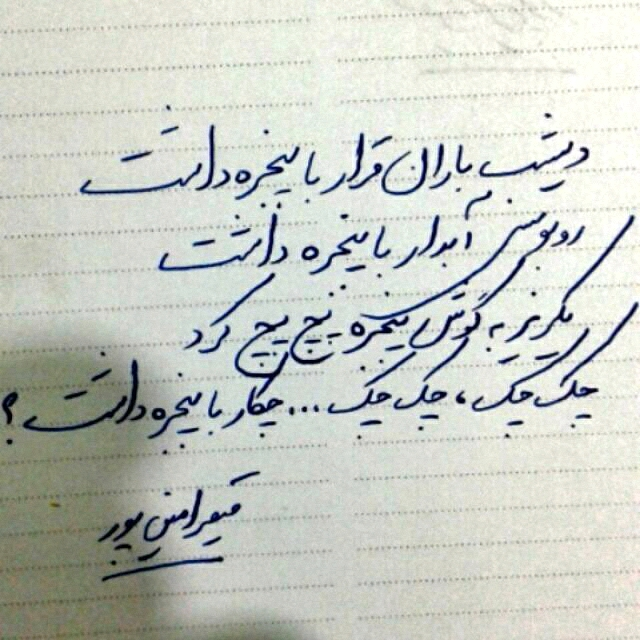 دیشب باران قرار با پنجره داشت
روبوسی آبدار با پنجره داشت
یکریز به گوش پنجره پچ پچ کرد
چک چک، چک چک ... چکار با پنجره داشت؟
قیصر امین پور